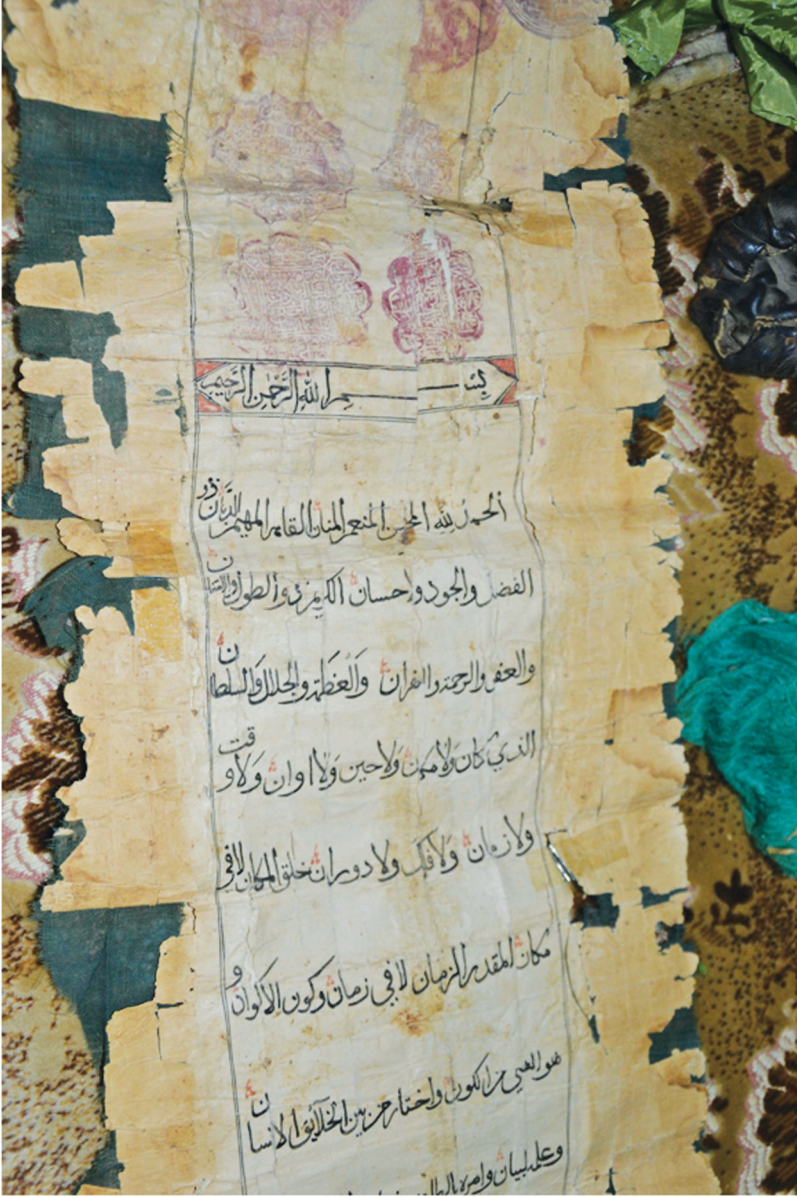 بِسْمِ اللهِ الرَّحْمٰنِ الرَّحِيْمِ
الحمد لله المحسن المنعم المنان القاهر المهيمن الديان ذو
الفضل والجود واحسان الكريم ذو الطول والامتنان
والعفو والرحمة والغفران وَالْعَظَمَة والجلال وَالسلطان
الذي كان وَلا مكان وَلاحين وَلا اوان وَلا وقت
ولا زمان وَلا فلك ولا دوران خلق المكان لا في
مكان المقدر الزمان لا في زمان وكون الاكوان و
هو من الكون واختار من بين الخلائق الانسان
وعلمه لبيان وامره